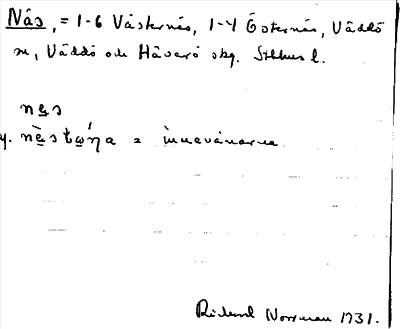 Näs, = 1-6 Västernäs, 1-4 Östernäs, Väddö
sn, Väddö och Häverö skg. Sthlms l.
nes
y. = innevånarna
Rickard Norrman 1931.